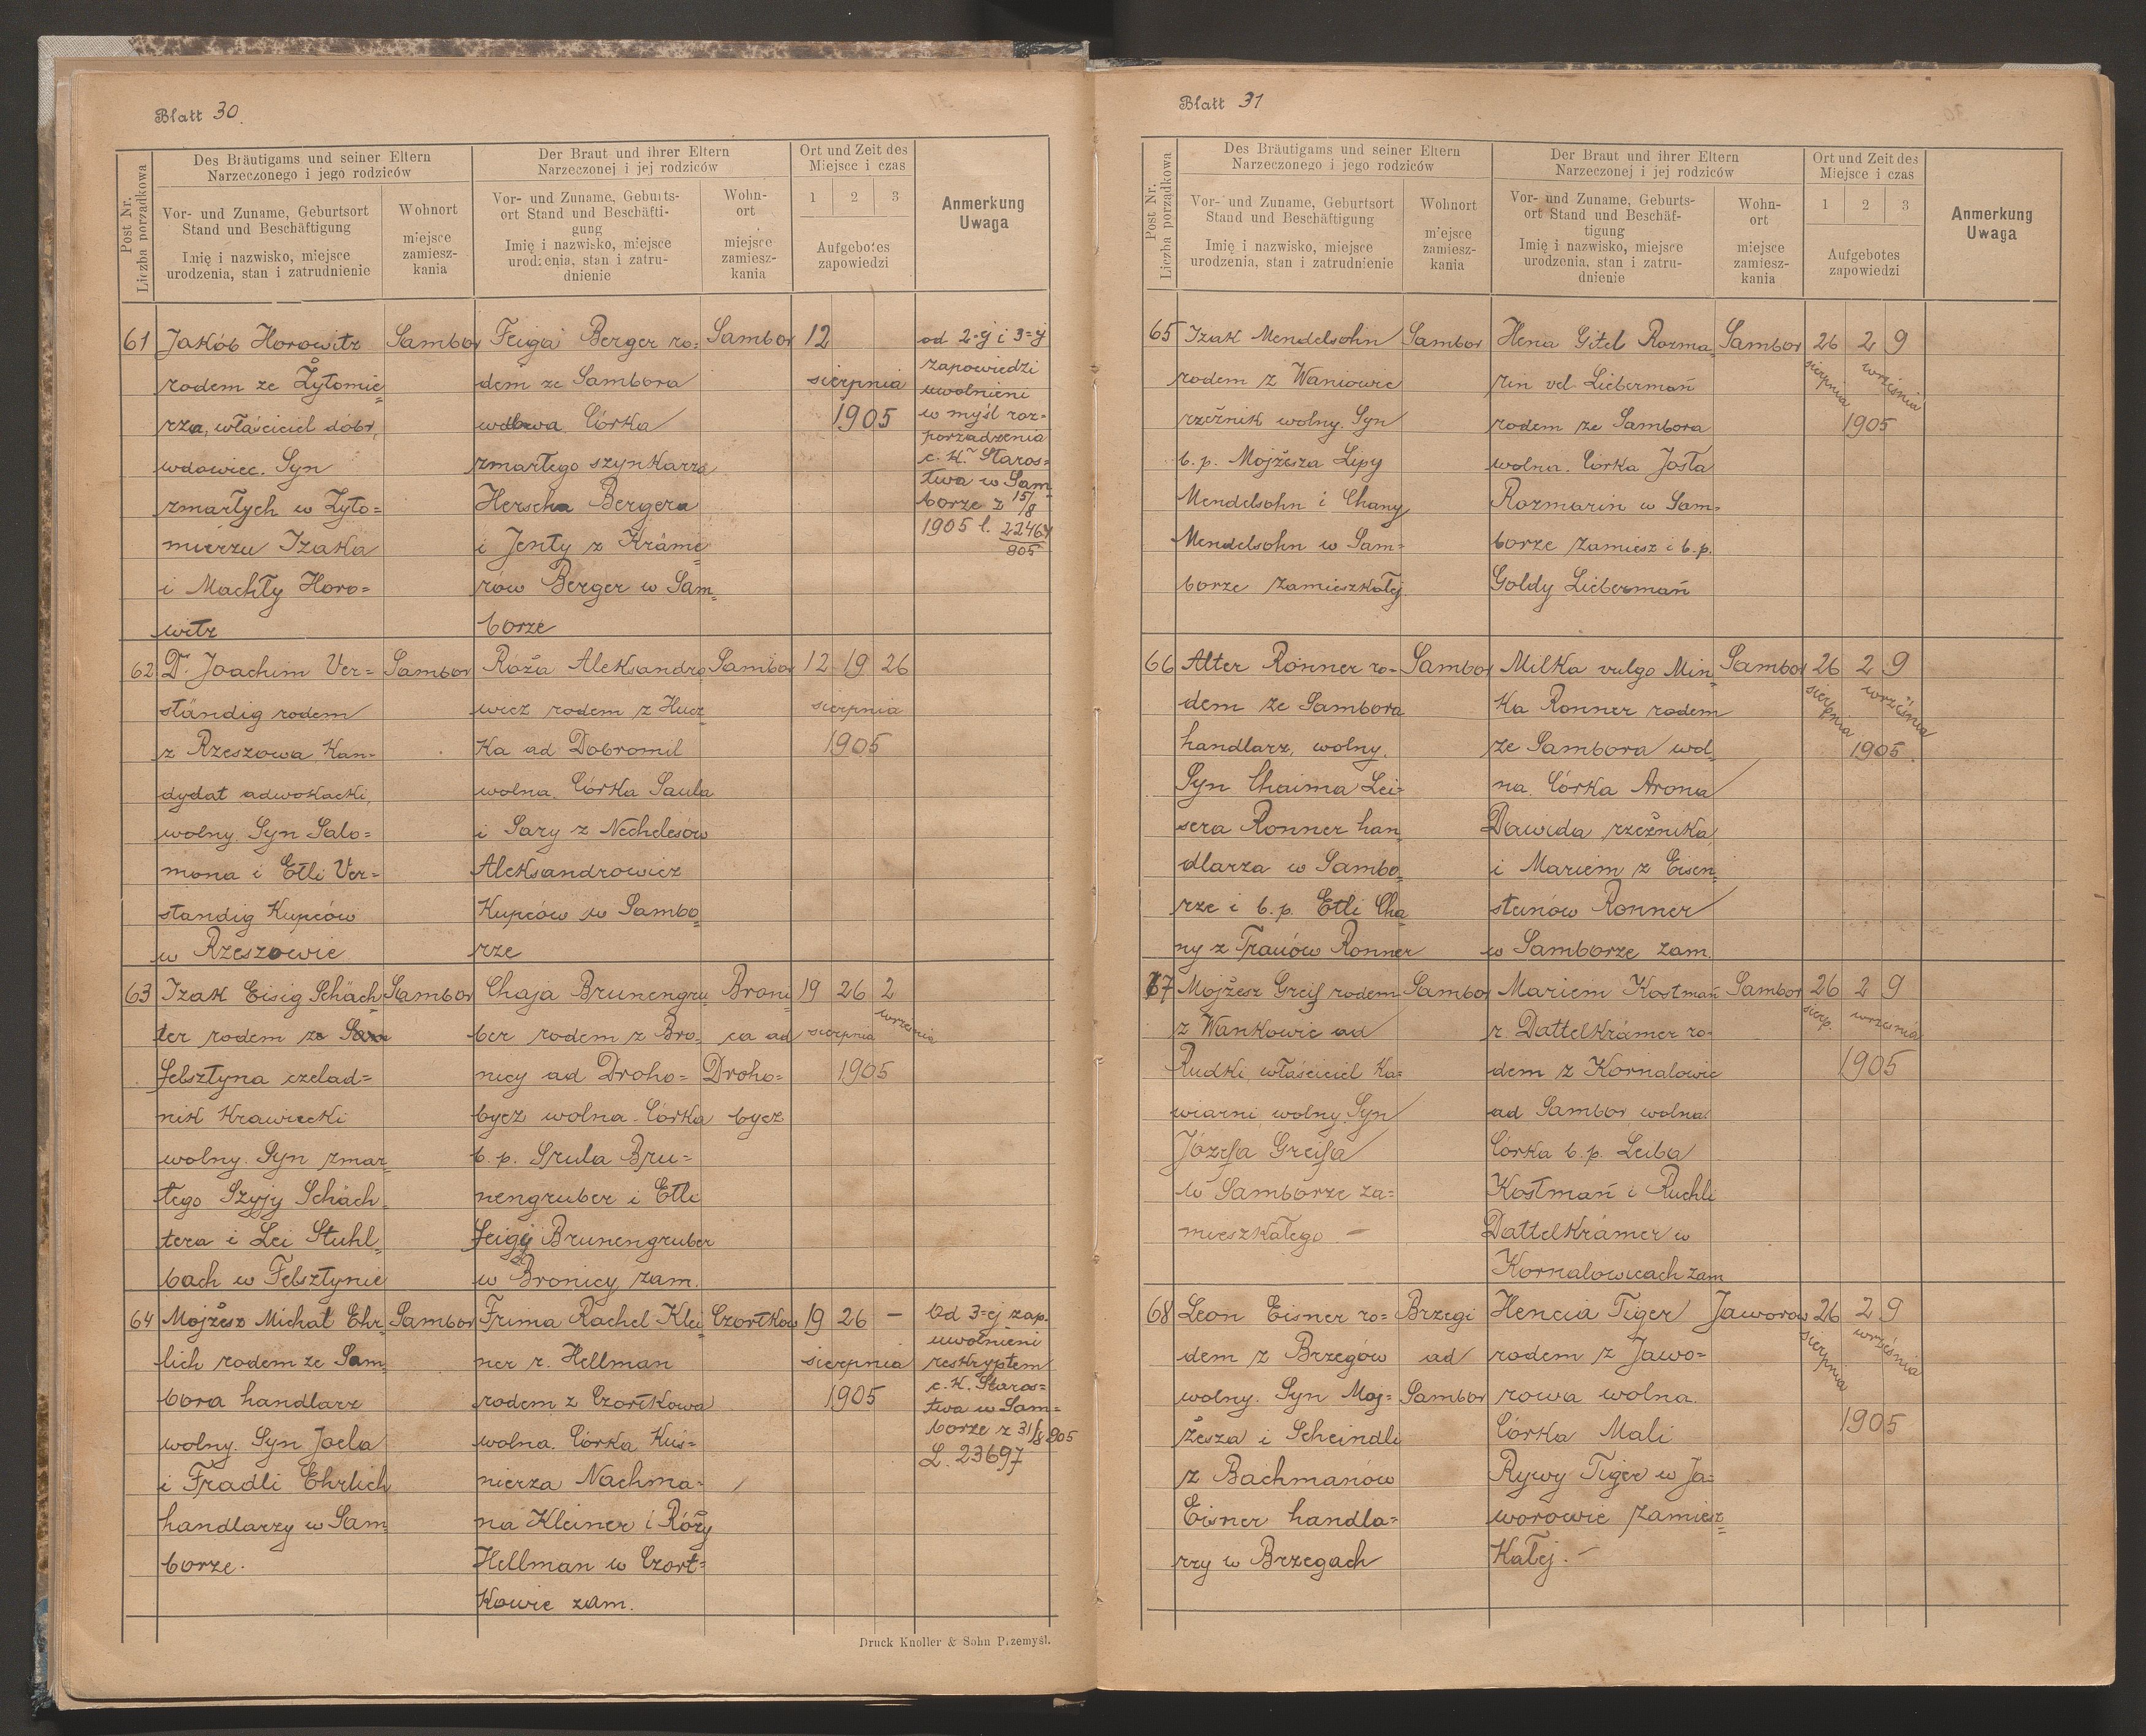 Blatt 30.
Post Nr.
Liczba porządkowa
Des Bräutigams und seiner Eltern
Narzeczonego i jego rodziców
Vor- und Zuname, Geburtsort
Stand und Beschäftigung
Imię i nazwisko, miejsce
urodzenia, stan i zatrudnienie
Wohnort
miejsce
zamiesz-
kania
Der Braut und ihrer Eltern
Narzeczonej i jej rodziców
Vor- und Zuname, Geburts-
ort Stand und Beschäfti-
gung
Imię i nazwisko, miejsce
urodzenia, stan i zatru-
dnienie
Wohn-
ort
miejsce
zamiesz-
kania
Ort und Zeit des
Miejsce i czas
1 2 3
Aufgebotes
zapowiedzi
Anmerkung
Uwaga
61
Jakób Horowitz
rodem ze Żytomie=
rza, właściciel dóbr,
wdowiec. Syn
zmarłych w Żyto=
mierzu Izaka
i Machły Horo=
witz
Sambor
Feiga Berger ro=
dem ze Sambora
wdowa Córka
zmarłego szynkarza
Herscha Bergera
i Jenty z Kráme
rów Berger w Sam=
borze
Sambor
12
sierpnia
1905
od 2-j i 3-j
zapowiedzi
uwolnieni
w myśl roz=
porządzenia
c. k. Staros=
twa w Sam=
borze z 15/8
1905 l. 22464
805
62
Dr. Joachim Ver=
ständig rodem
z Rzeszowa Kan=
dydat adwokacki,
wolny. Syn Salo=
mona i Etli Ver=
standig Kupców
w Rzeszowie
Sambor
Róża Aleksandro
wicz rodem z Hucz=
ka ad Dobromil
wolna. Córka Saula
i Sary z Nechelesów
Aleksandrowicz
Kupców w Sambo=
rze
Sambor
12 19 26
sierpnia
1905
63
Izak Eisig Schäch=
ter rodem ze Sam
felsztyna czelad=
nik Krawiecki
wolny. Syn zmar=
łego Szyji Schäch=
tera i Lei Stuhl=
bach w Felsztynie
Sambor
Chaja Brunengru=
ber rodem z Bro=
nicy ad Droho=
bycz wolna. Córka
b. p. Srula Bru=
nengruber i Etli
feigi Brunengruber
w Bronicy zam.
Broni
ca ad
Droho=
bycz
19 26 2
sierpnia września
1905
64
Mojżesz Michał Ehr=
lich rodem ze Sam=
bora handlarz
wolny. Syn Joela
i Fradli Ehrlich
handlarzy w Sam=
borze.
Sambor
Frima Rachel Klei=
ner r. Hellman
rodem z Czortkowa
wolna. Córka Kuś=
nierza Nachma=
na Kleiner i Róży
Hellman w Czort=
kowie zam.
Czortków
19 26 —
sierpnia
1905
Od 3=ej zap.
uwolnieni
reskryptem
c. k. Staros=
twa w Sam=
borze z 31/8 905
L. 23697
Druck Knoller & Sohn Przemyśl.
Blatt 31
Post Nr.
Liczba porządkowa
Des Bräutigams und seiner Eltern
Narzeczonego i jego rodziców
Vor- und Zuname, Geburtsort
Stand und Beschäftigung
Imię i nazwisko, miejsce
urodzenia, stan i zatrudnienie
Wohnort
miejsce
zamiesz-
kania
Der Braut und ihrer Eltern
Narzeczonej i jej rodziców
Vor- und Zuname, Geburts-
ort Stand und Beschäf-
tigung
Imię i nazwisko, miejsce
urodzenia, stan i zatru-
dnienie
Wohn-
ort
miejsce
zamiesz-
kania
Ort und Zeit des
Miejsce i czas
1 2 3
Aufgebotes
zapowiedzi
Anmerkung
Uwaga
65
Izak Mendelsohn
rodem z Waniowic
rzeźnik wolny. Syn
b. p. Mojżesza Lipy
Mendelsohn i Chany
Mendelsohn w Sam=
borze zamieszkałej
Sambor
Hena Gitel Rozma=
rin vel Lieberman
rodem ze Sambora
wolna. Córka Josła
Rozmarin w Sam=
borze zamiesz i b. p.
Goldy Lieberman
Sambor
26 2 9
sierpnia września
1905
66
Alter Ronner ro=
dem ze Sambora
handlarz, wolny.
Syn Chaima Lei=
sera Ronner han=
dlarza w Sambo=
rze i b. p. Etli Cha
ny z Frauów Ronner
Sambor
Milka vulgo Min=
ka Ronner rodem
ze Sambora wol=
na. Córka Arona
Dawida rzeźnika,
i Mariem z Eisen=
steinów Ronner
w Samborze zam.
Sambor
26 2 9
sierpnia września
1905.
67
Mojżesz Greif rodem
z Wankowic ad
Rudki, właściciel Ka=
wiarni, wolny. Syn
Józefa Greifa
w Samborze za=
mieszkałego —
Sambor
Mariem Kostman
r. Dattelkrämer ro=
dem z Kornalowic
ad Sambor, wolna.
Córka b. p. Leiba
Kostman i Ruchli
Dattelkrämer w
Kornalowicach zam
Sambor
26 2 9
sierp. września
1905
68
Leon Eisner ro=
dem z Brzegów
wolny. Syn Moj=
żesza i Scheindli
z Bachmanów
Eisner handla=
rzy w Brzegach
Brzegi
ad
Sambor
Hencia Tiger
rodem z Jawo=
rowa wolna.
Córka Mali
Rywy Tiger w Ja=
worowie zamiesz=
kałej. —
Jaworow
26 2 9
sierpnia września
1905